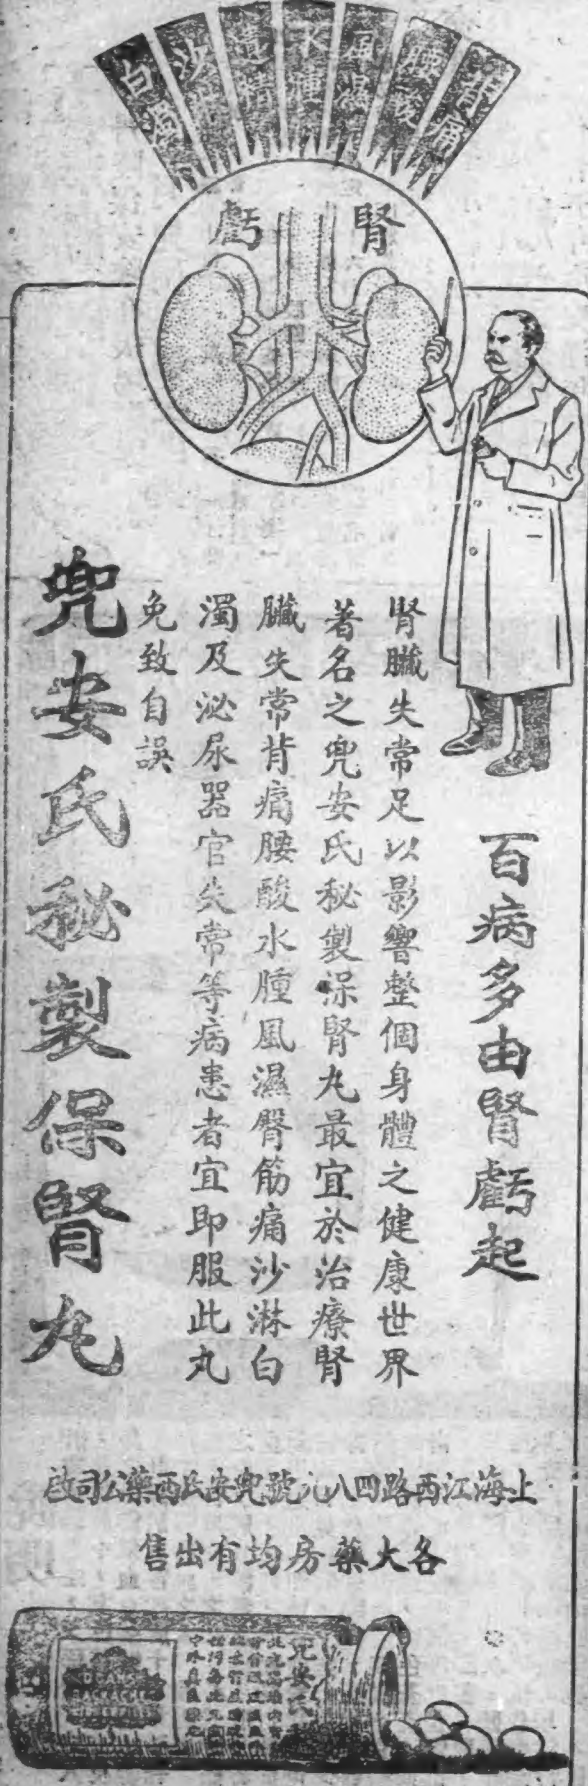 背痛
腰酸
風濕
水腫
遺精
沙淋
白濁
腎虧
百病多由腎虧起
腎臟失常足以影響整個身體之健康世界
著名之兜安氏秘製保腎丸最宜於治療腎
臟失常背痛腰酸水腫風濕臀筋痛沙淋白
濁及泌尿器官失常等病患者宜即服此丸
免致自誤
兜安氏秘製保腎丸
上海江西路四八九號兜安氏西藥公司啟
各大藥房均有出售
兜安氏
DOANS
BACKACHE